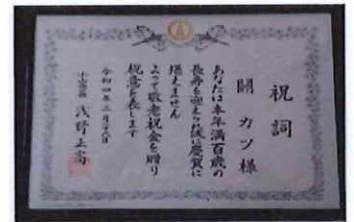 祝詞
關 カツ様
あなたは本年満百歳の
長寿を迎えられ誠に慶賀に
堪えません
よって敬老祝金を贈り
祝意を表します
令和四年
小山市長 浅野正富